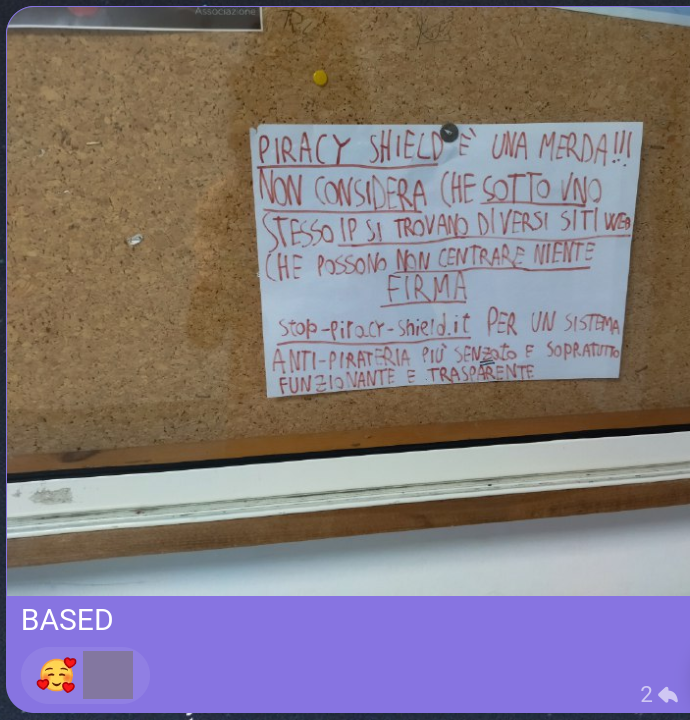 Associazione
PIRACY SHIELD È UNA MERDA!!!
NON CONSIDERA CHE SOTTO UNO
STESSO IP SI TROVANO DIVERSI SITI WEB
CHE POSSONO NON CENTRARE NIENTE
FIRMA
stop-piracy-shield.it PER UN SISTEMA
ANTI-PIRATERIA PIÙ SENzato E SOPRATUTTO
FUNZIONANTE E TRASPARENTE
BASED
2